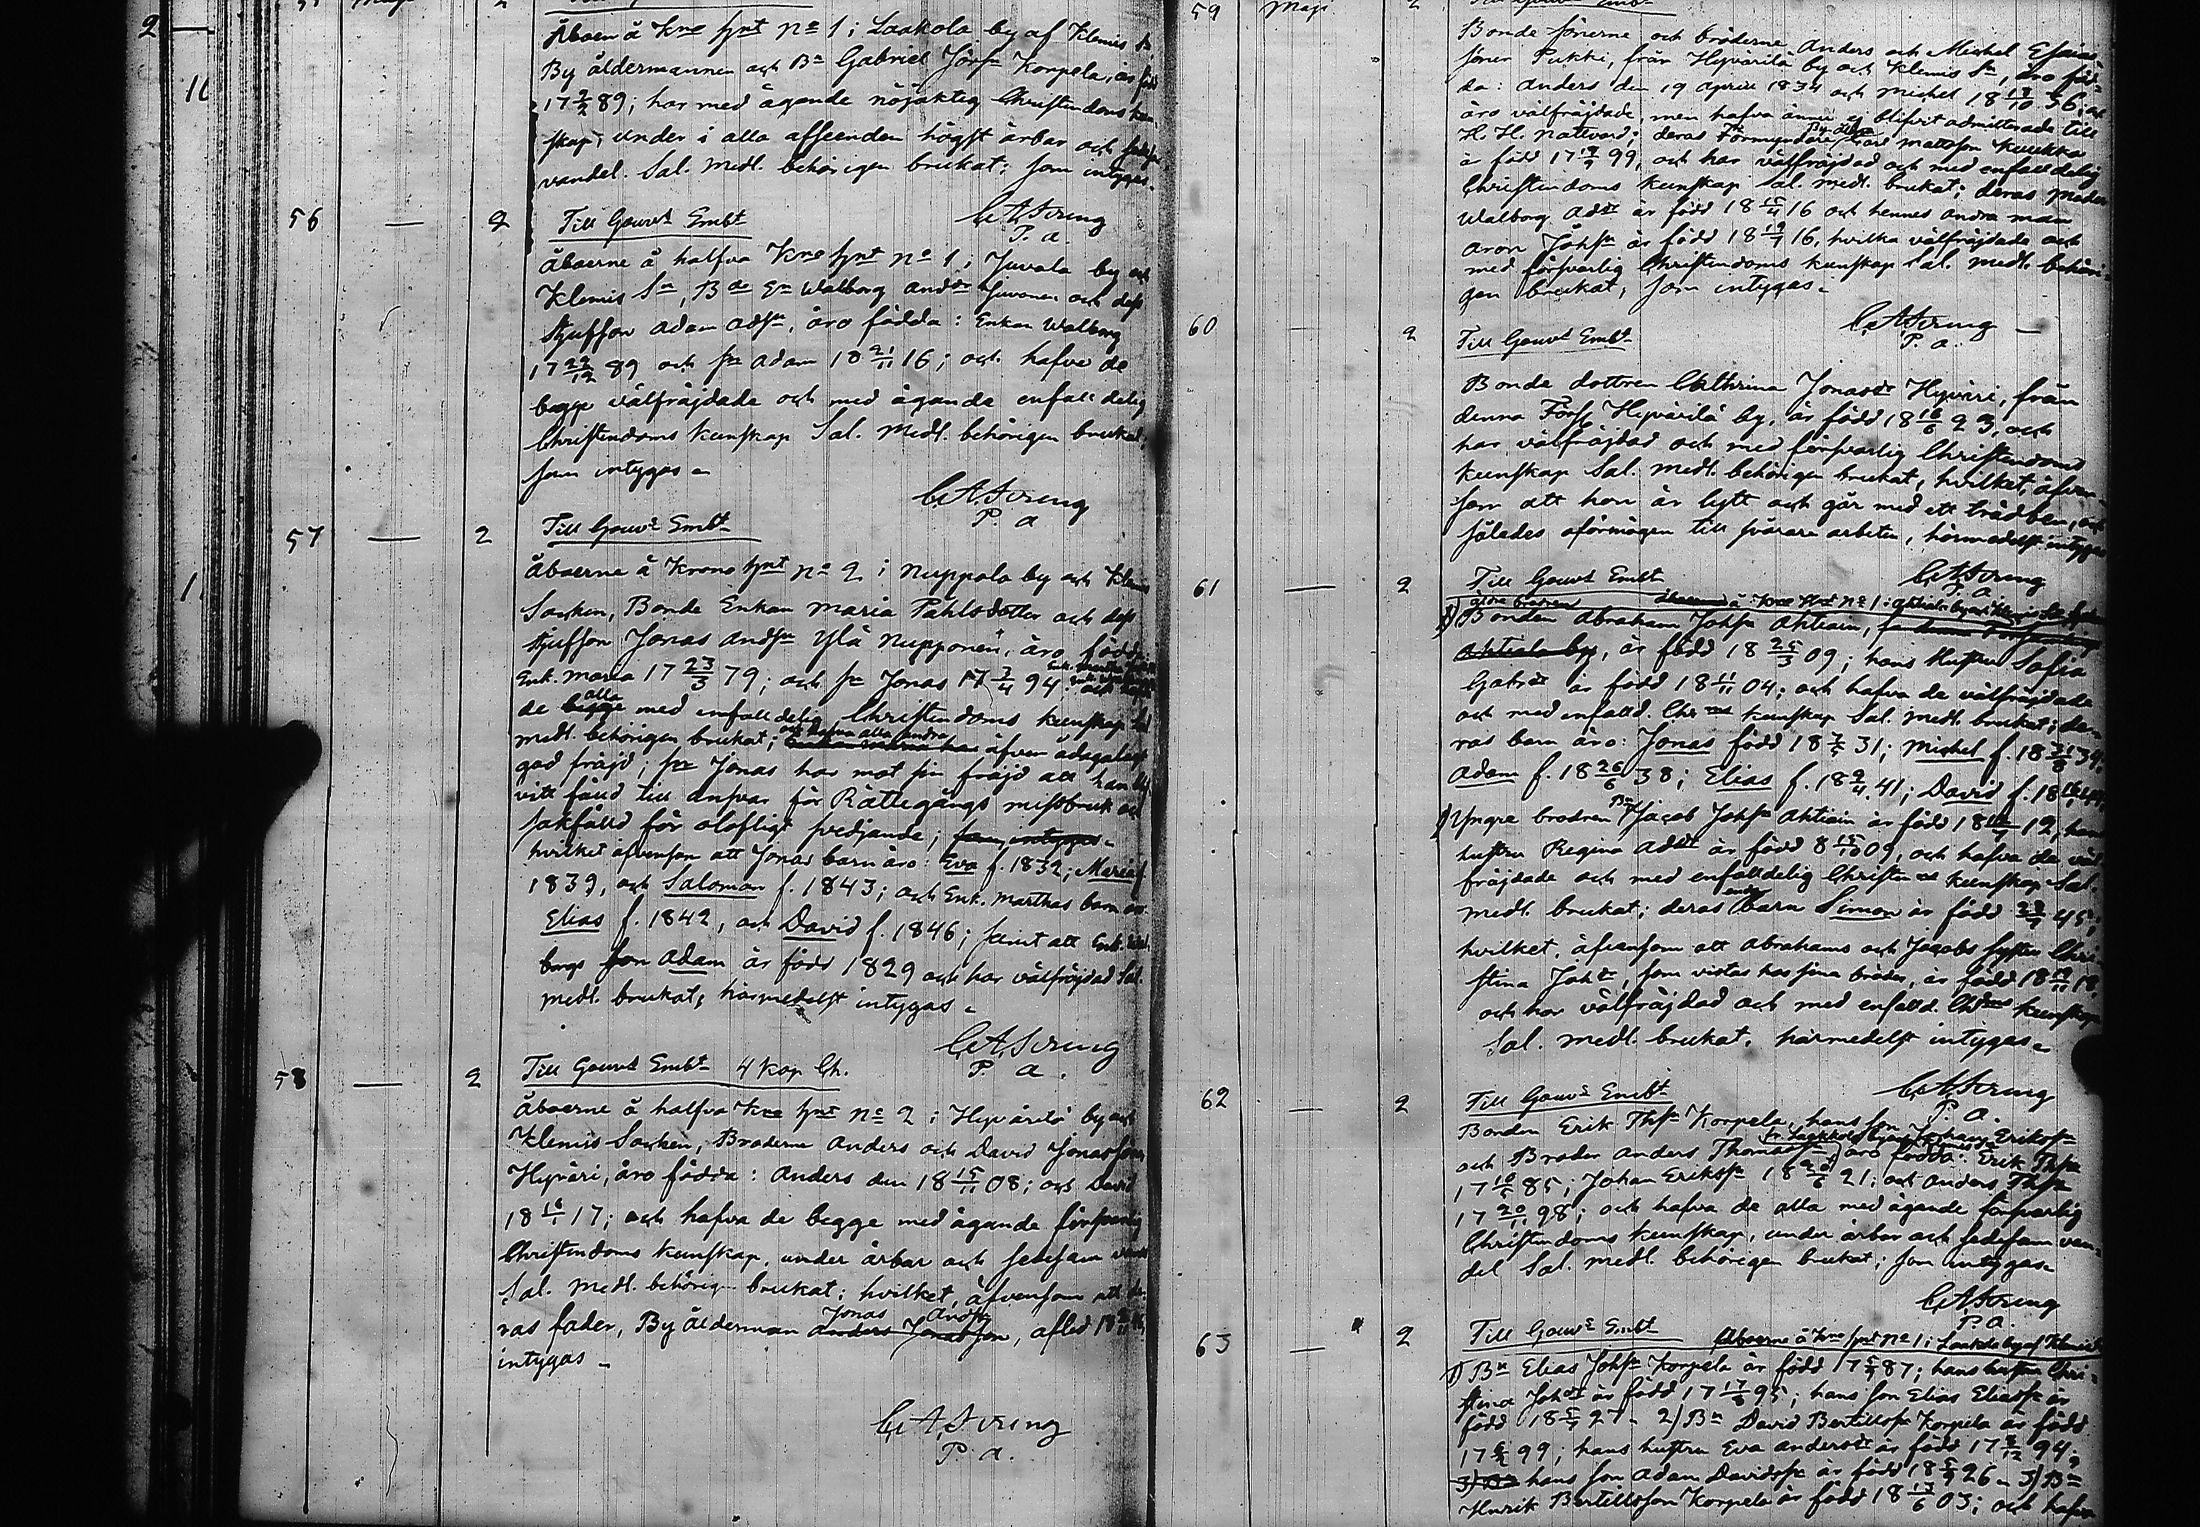 Åboen å Kno hnt No 1 i Laakola by af Klemis
By åldermannen och Bn Gabriel Jörsn Korpela, är född
17 2/2 89; har med ägande nöjaktig Christendoms kun-
skap, under i alla afseenden högst ärbar och
vandel. Sal. Medl. behörigen brukat; som intygas.
C.A. Soring
P. a.
56 — 2 Till Gouvts Embt
Åboerne å halfva Kno hnt No 1, i Juvala by och
Klemis Sn, Bde En Walborg Anddr Juvonen och dess
stjufson Adam Adsn, äro födda: Enkan Walborg
17 22/12 89 och sn Adam 18 21/11 16; och hafva de
begge välfräjdade och med ägande enfalldelig
Christendoms kunskap Sal. Medl. behörigen brukat,
som intygas
C.A. Soring
P. a
57 — 2 Till Gouvs Embt
Åboerne å Krono hnt No 2 i Nuppola by och Klemis
Socken, Bonde Enkan Maria Påhlsdotter och dess
stjufson Jonas Andsn Ylä Nupponen, äro födda
Enk. Maria 17 23/3 79; och sn Jonas 17 3/4 94
de begge alla med enfalldelig Christendoms kunskap Sal.
medl. behörigen brukat; och hafva alla andra äfven ådagalagt
god fräjd; sn Jonas har mot sin fräjd att han bli-
vit fälld till ansvar för Rättegångs missbruk och
sakfälld för olofligt svedjande; som intygas
hvilket äfvensom att Jonas barn äro: Eva f. 1832; Maria f.
1839, och Salomon f. 1843; och Enk. Marthas barn äro
Elias f. 1842, och David f. 1846; samt att Enk. Wal-
borgs son Adam är född 1829 och har välfräjdad Sal.
medl. brukat, härmedelst intygas
C.A. Soring
P. a.
58 — 2 Till Gouvts Embt 4 kop Ch.
Åboerne å halfva Kno hnt No 2 i Hyvärilä by och
Klemis Socken, Bröderne Anders och David Jonassöner
Hyväri, äro födda: Anders den 18 15/11 08; och David
18 16/1 17; och hafva de begge med ägande försvarlig
Christendoms kunskap, under ärbar och sedesam vandel
Sal. Medl. behörigen brukat; hvilket, äfvensom att de-
ras fader, By ålderman Anders Jonasson Jonas Andsn, afled
intygas
C.A. Soring
P. a.
59 Maji 2 Till Gouvts Embt
Bonde sönerne och bröderne Anders och Michel Esaias-
söner Pukki, från Hyvärilä by och Klemis Sn, äro föd-
da: Anders den 19 April 1834 och Michel 18 36
äro välfräjdade, men hafva ännu ej blifvit admitterade till
H. H. Nattvard; deras Förmyndare Mattsson Kuukka
är född 17 99, och har välfräjdad och med enfalldelig
Christendoms kunskap Sal. medl. brukat; deras moder
Walborg Addr är född 18 15/4 16 och hennes andra man
Aron Johsn är född 18 19/7 16, hvilka välfräjdade och
med försvarlig Christendoms kunskap Sal. medl. behöri-
gen brukat, som intygas
C.A. Soring
P. a.
60 — 2 Till Gouvts Embt
Bonde dottren Cathrina Jonasdr Hyväri, från
denna Förs. Hyvärilä by, är född 18 16/6 23, och
har välfräjdad och med försvarlig Christendoms
kunskap Sal. medl. behörigen brukat, hvilket, äfven-
som att hon är lytt och går med ett trädben, och
således oförmögen till svårare arbeten, härmedelst intygas
C.A. Soring
P. a.
61 — 2 Till Gouvts Embt
äldre brodren Åboerne å Kno hnt No 1 i Ahtiala by
Bonden Abraham Johsn Ahtiain,
Ahtiala by, är född 18 25/3 09; hans Hustru Sofia
Gabrdr är född 18 11/11 04; och hafva de välfräjdade
och med enfalld. Chrms kunskap Sal. medl. brukat; de-
ras barn äro: Jonas född 18 31; Michel f. 18
Adam f. 18 26/6 38; Elias f. 18 2/4 41; David f. 18
Yngre brodren Bn Jacob Johsn Ahtiain är född 18 12, hans
hustru Regina Addr är född 8 15/10 09, och hafva de väl-
fräjdade och med enfalldelig Christenms kunskap Sal.
medl. brukat; deras enda barn Simon är född 45;
hvilket, äfvensom att Abrahams och Jacobs syster Chri-
stina Johdr, som vistas hos sina bröder, är född 18 18
och har välfräjdad och med enfalld. Chdms kunskap
Sal. medl. brukat, härmedelst intygas
C.A. Soring
P. a.
62 — 2 Till Gouvs Embt
Bonden Erik Thsn Korpela, hans son Johan Eriksn
och Broder Anders Thomassn, äro födda: Erik Thsn
17 85; Johan Eriksn 18 21; och Anders Thsn
17 20/11 98; och hafva de alla med ägande försvarlig
Christendoms kunskap, under ärbar och sedesam van-
del Sal. medl. behörigen brukat; som intygas
C.A. Soring
P. a.
63 — 2 Till Gouvs Embt Åboerne å Kno hnt No 1 i Laakola by af Klemis
1) Bn Elias Johsn Korpela är född 17 87; hans hustru Chri-
stina Johdr är född 17 17/8 95; hans son Elias Eliassn är
född 18 27 – 2) Bn David Bertillssn Korpela är född
17 99; hans hustru Eva Andersdr är född 17 94,
3) Bn hans son Adam Davidssn är född 18 26 – 3) Bn
Henrik Bertillsson Korpela är född 18 13/6 03; och hafva